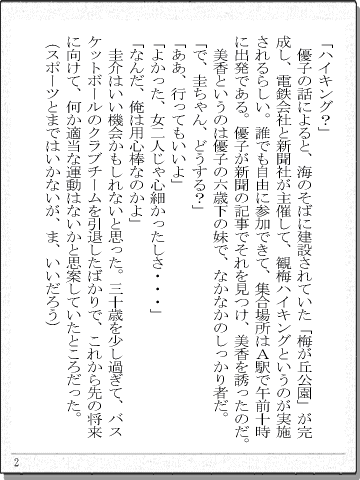 「ハイキング？」
　優子の話によると、海のそばに建設されていた「梅が丘公園」が完
成し、電鉄会社と新聞社が主催して、観梅ハイキングというのが実施
されるらしい。誰でも自由に参加できて、集合場所はＡ駅で午前十時
に出発である。優子が新聞の記事でそれを見つけ、美香を誘ったのだ。
　美香というのは優子の六歳下の妹で、なかなかのしっかり者だ。
「で、圭ちゃん、どうする？」
「ああ、行ってもいいよ」
「よかった、女二人じゃ心細かったしさ・・・」
「なんだ、俺は用心棒なのかよ」
　圭介はいい機会かもしれないと思った。三十歳を少し過ぎて、バス
ケットボールのクラブチームを引退したばかりで、これから先の将来
に向けて、何か適当な運動はないかと思案していたところだった。
（スポーツとまではいかないが、ま、いいだろう）
2